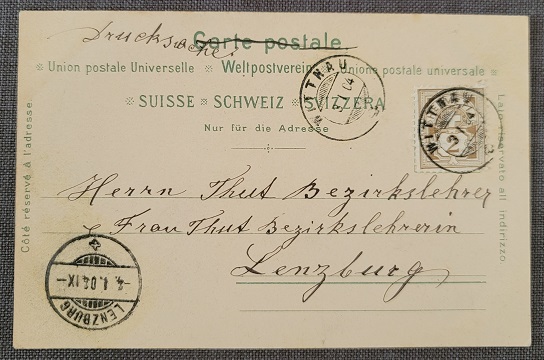 Drucksache.
Carte postale
Union postale Universelle Weltpostverein Unione postale universale
SUISSE SCHWEIZ SVIZZERA
Nur für die Adresse
Côté réservé à l'adresse.
Lato riservato all' indirizzo.
WITTNAU
3 I 04
WITTNAU
Herrn Thut Bezirkslehrer
Frau Thut Bezirkslehrerin
Lenzburg
LENZBURG